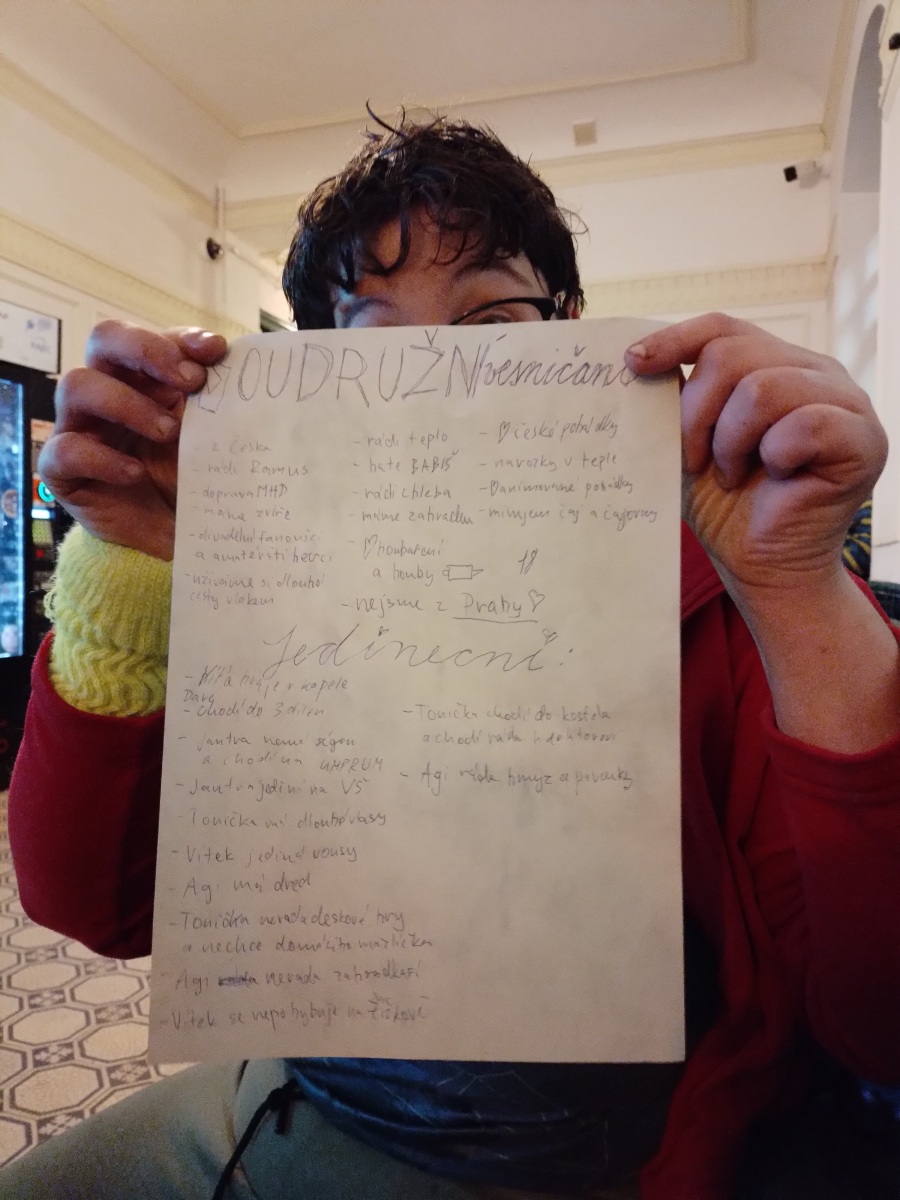 SOUDRUŽNÍ vesničané
- z Česka
- rádi Rumus
- doprava MHD
- máme zvíře
- divadelní fanoušci
a amatérští herci
- užíváme si dlouhé
cesty vlakem
- rádi teplo
- hate BABIŠ
- rádi chleba
- máme zahradu
- ♡houbaření
a houby
- nejsme z Prahy♡
- ♡české pohádky
- navozky v teple
- ♡animované pohádky
- milujem čaj a čajovny
Jedineční:
- hraje v kapele
- chodí do
- Jantra nemá ségru
a chodí na UMPRUM
- Jantra jediní na VŠ
- Tonička má dlouhé vlasy
- Vítek jediné vousy
- Agi má dred
- Tonička nerada deskové hry
a nechce domácího mazlíčka
- Agi nerada zahradkaří
- Vítek se nepohybuje na Žižkově
- Tonička chodí do kostela
a chodí ráda k doktorovi
- Agi ráda hmyz a pavouky